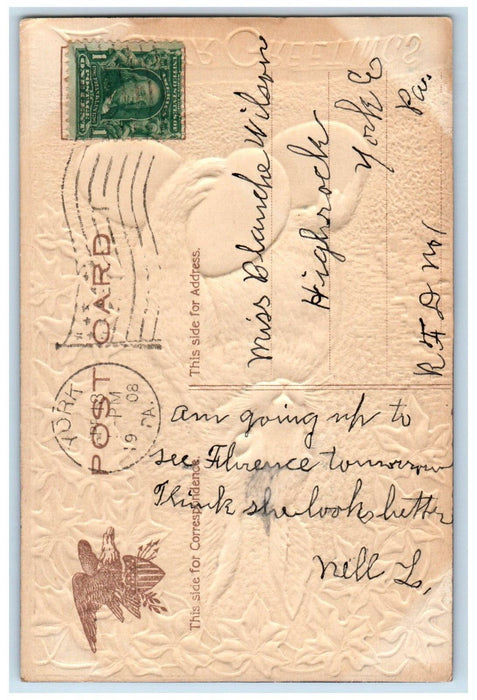 POST CARD
This side for Correspondence.
This side for Address.
YORK
PM
19 08
PA.
Miss Blanche Wilson
Highrock
York Co
Pa.
R F D No 1
Am going up to
see Florence tomorrow
Think she looks better
Nell L,
GREETINGS